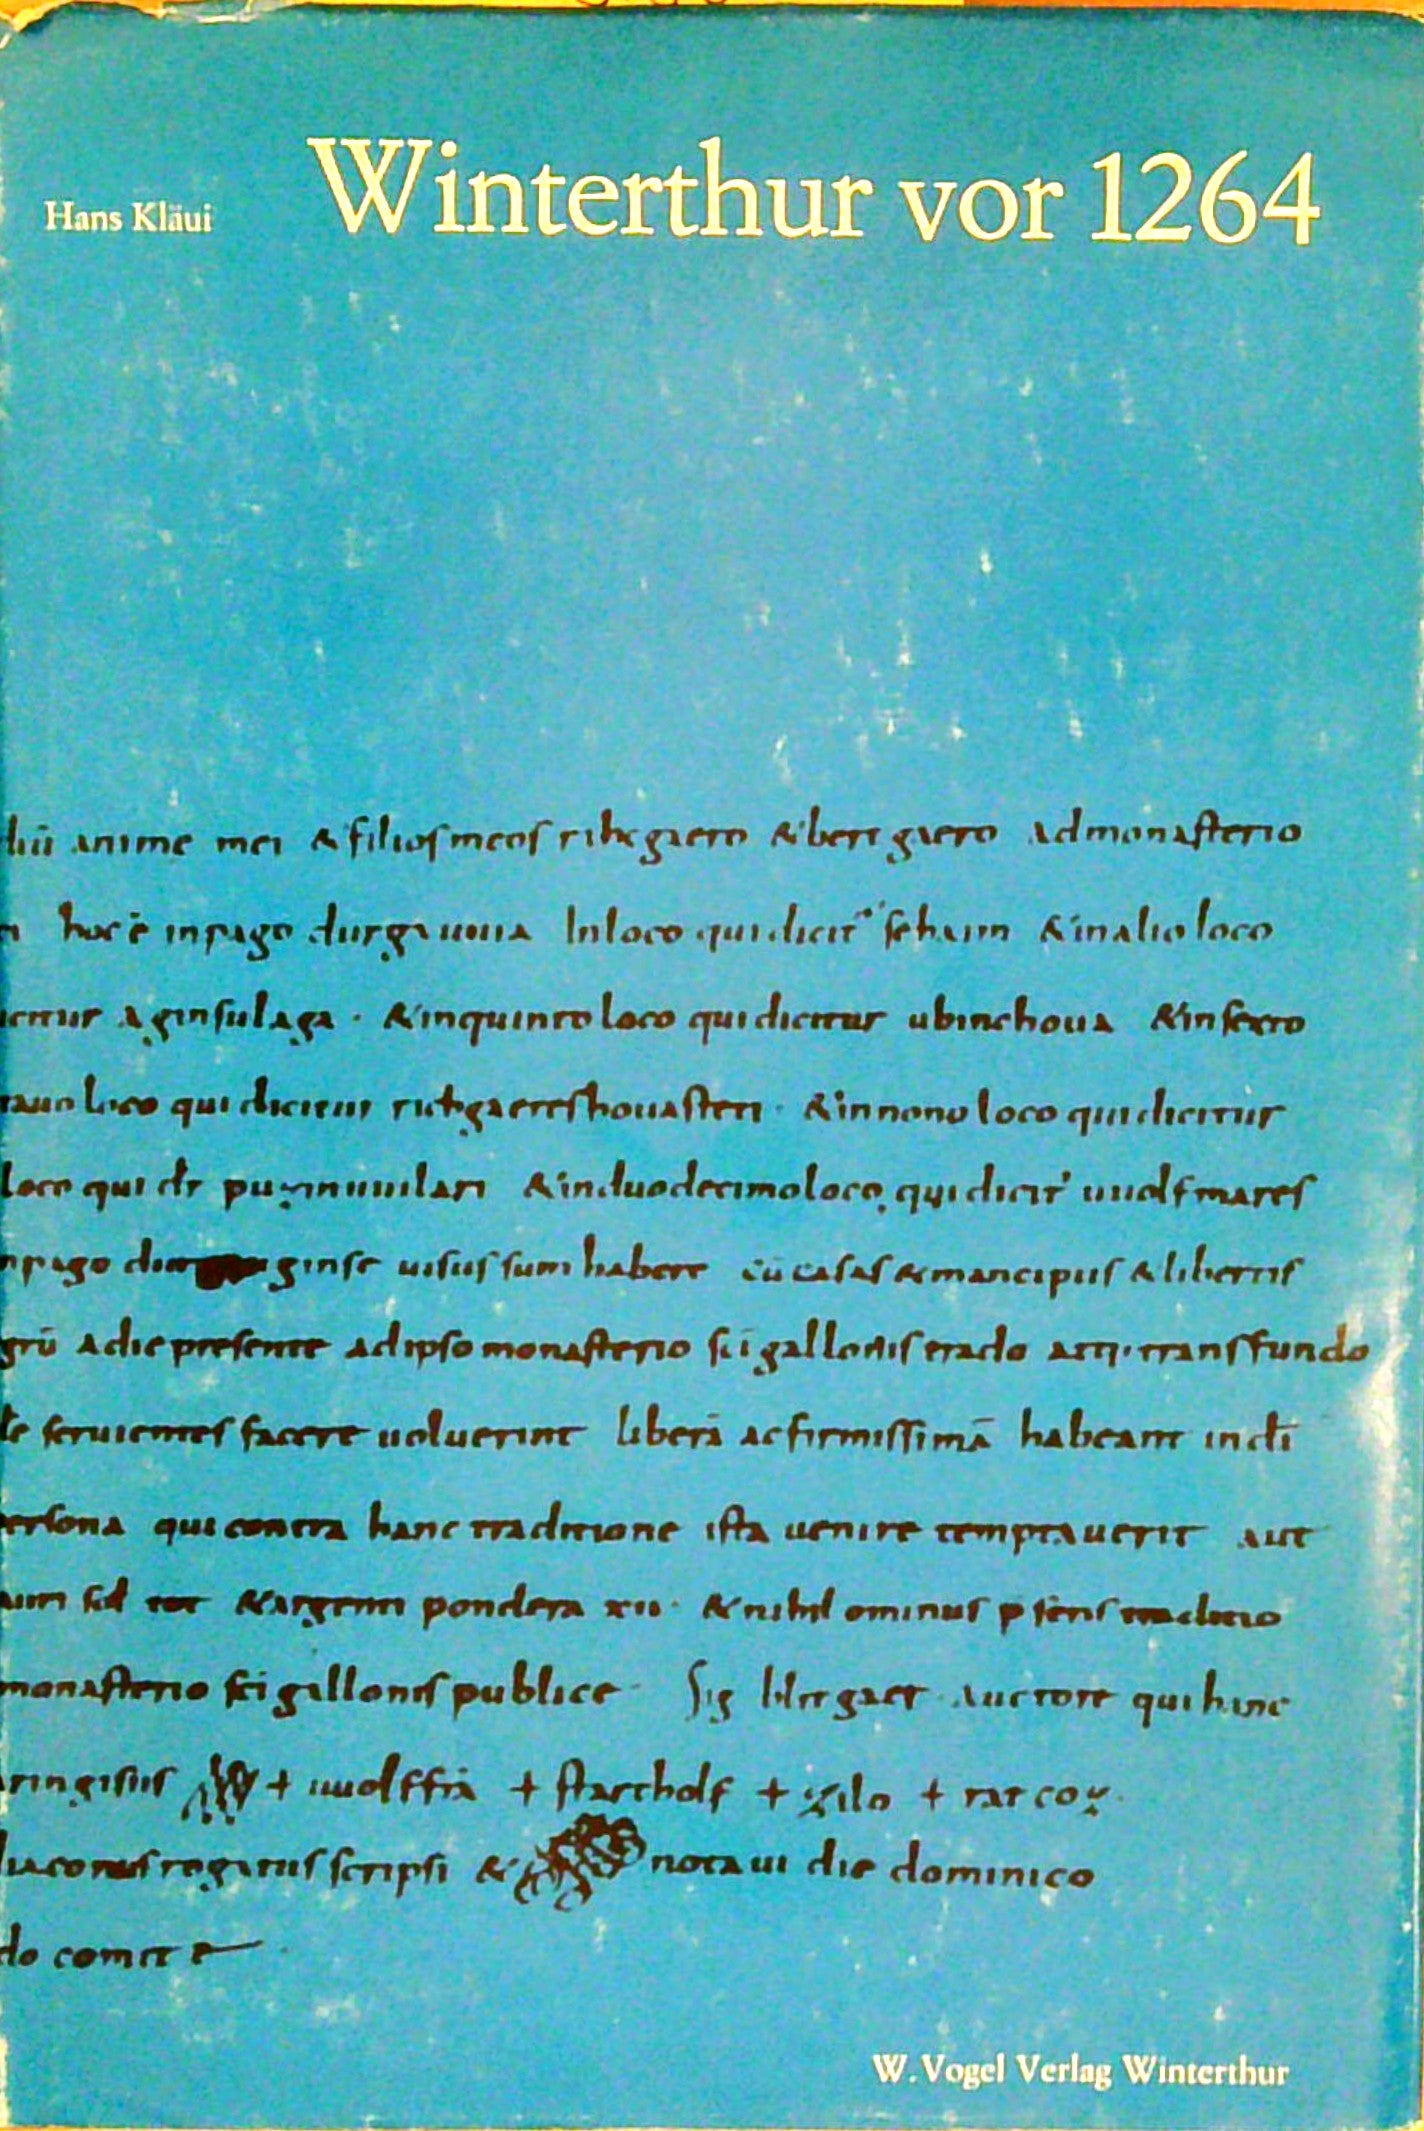 Winterthur vor 1264
Hans Kläui
anime mei & filios meos rihgaero & bertgaero ad monasterio
hoc ē in pago durgauuia In loco qui dicit sehaim & in alio loco
citur aginsulaga · & in quinto loco qui dicitur ubinchova & in sexto
tavo loco qui dicitur richgaereshovasteti · & in nono loco qui dicitur
loco qui dr & in duodecimo loco qui dicit uuolfmares
pago ginse visus sum habere cū casas & mancipiis & libertis
a die presente ad ipso monasterio sci gallonis trado atq· transfundo
servientes facere voluerint liberā ac firmissimā habeant in di
ersona qui contra hanc traditione ista venire temptaverit aut
sol & argenti pondera xii · & nihil ominus psens traditio
monasterio sci gallonis publice · Sig blitgaer auctore qui hanc
ringisus + uuolffrā + starcholf + zilo + ratcoz
diaconus rogitus scripsi & notavi die dominico
do comite
W. Vogel Verlag Winterthur